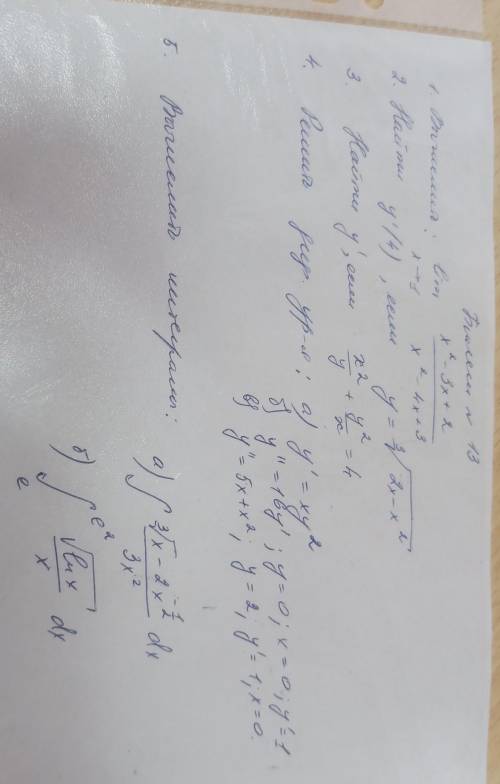 Билет № 13
1. Вычислить: lim x→1 (x² - 3x + 2)/(x² - 4x + 3)
2. Найти y'(4), если y = ∛(2x - x²)
3. Найти y', если x²/y + y²/x = 4
4. Решить диф. ур-е: а) y' = xy²
б) y'' = 16y'; y = 0; x = 0; y' = 1
в) y'' = 5x + x²; y = 2; y' = 1; x = 0.
5. Вычислить интегралы: а) ∫ (∛x - 2x⁻¹)/(3x²) dx
б) ∫ₑ^(e²) √(ln x)/x dx